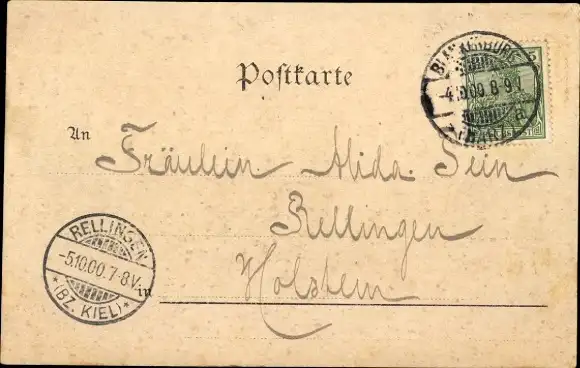 Postkarte
BLANKENBURG
-4.10.00. 8-9V.
(HARZ)
An
Fräulein Alida Sein
Rellingen
Holstein
in
RELLINGEN
-5.10.00.7-8V.
*(BZ. KIEL)*